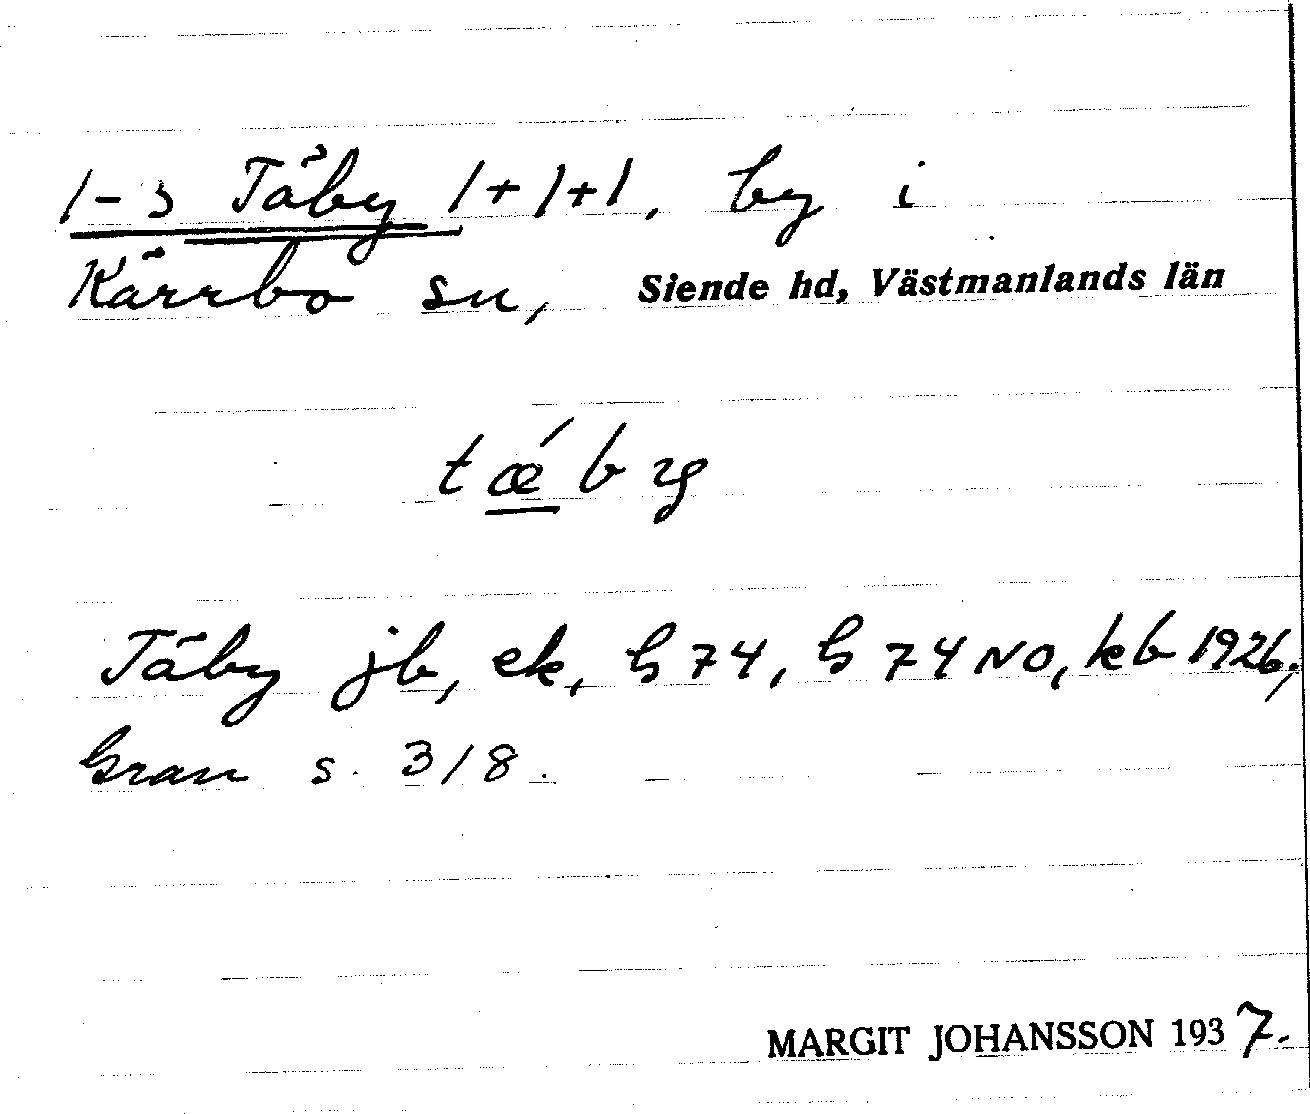 1-3 Täby 1+1+1, by i
Kärrbo sn, Siende hd, Västmanlands län
t ǽ b y
Täby jb, ek, h 74, h 74 NO, kb 1926;
Gran s. 318.
MARGIT JOHANSSON 1937.